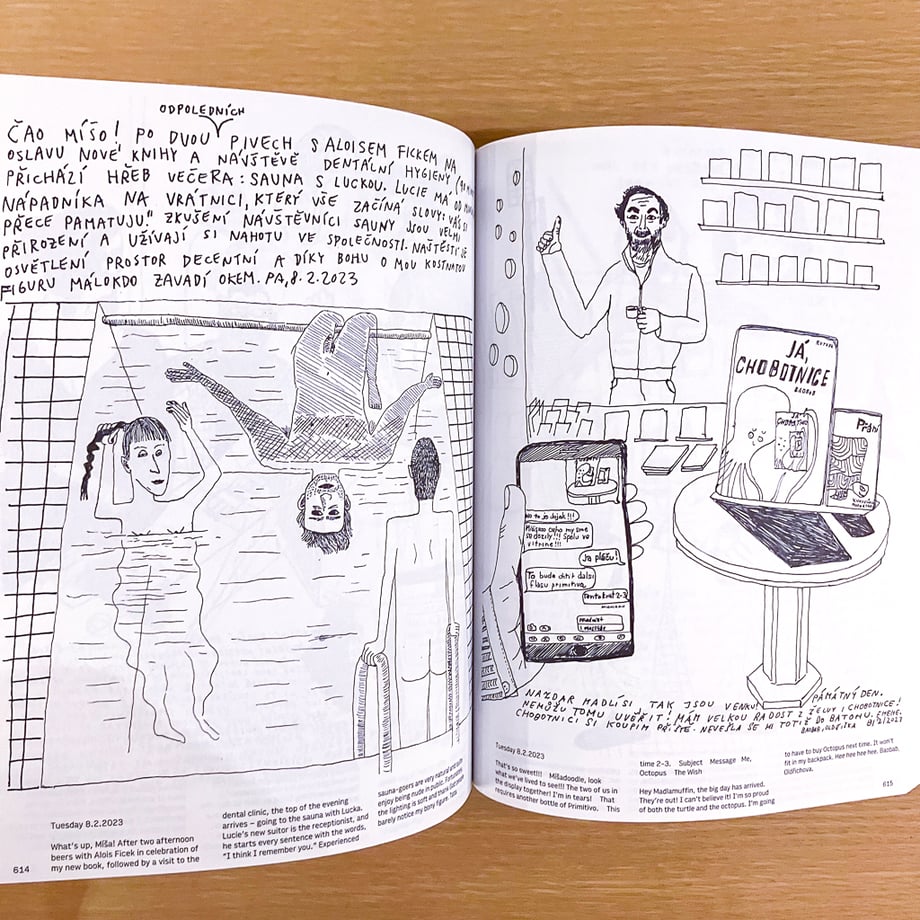 ODPOLEDNÍCH
ČAO MÍŠO! PO DVOU PIVECH S ALOISEM FICKEM NA
OSLAVU NOVÉ KNIHY A NÁVŠTĚVĚ DENTÁLNÍ HYGIENY
PŘICHÁZÍ HŘEB VEČERA: SAUNA S LUCKOU. LUCIE MÁ OD
NÁPADNÍKA NA VRÁTNICI, KTERÝ VŠE ZAČÍNÁ SLOVY: VÁS SI
PŘECE PAMATUJU" ZKUŠENÍ NÁVŠTĚVNÍCI SAUNY JSOU VELMI
PŘIROZENÍ A UŽÍVAJÍ SI NAHOTU VE SPOLEČNOSTI. NAŠTĚSTÍ JE
OSVĚTLENÍ PROSTOR DECENTNÍ A DÍKY BOHU O MOU KOSTNATOU
FIGURU MÁLOKDO ZAVADÍ OKEM. PA, 8.2.2023
Tuesday 8.2.2023
What's up, Míša! After two afternoon
beers with Alois Ficek in celebration of
my new book, followed by a visit to the
dental clinic, the top of the evening
arrives – going to the sauna with Lucka.
Lucie's new suitor is the receptionist, and
he starts every sentence with the words,
"I think I remember you." Experienced
sauna-goers are very natural and quite
enjoy being nude in public. Fortunately,
the lighting is soft and thank God people
barely notice my bony figure. Tata
614
JÁ,
CHOBOTNICE
BAOBAB
JÁ,
CHOBOTNICE
Přání
No to je doják!!!
se dožily!!! Spolu ve
vitríně!!!
Ja pláču!
To bude chtít další
flašu primitiva
Tentokrát 2-3
NAZDAR MADLÍSI, TAK JSOU VENKU! PAMÁTNÝ DEN.
NEMŮŽU TOMU UVĚŘIT! MÁM VELKOU RADOST Z ŽELVY I CHOBOTNICE!
CHOBOTNICI SI KOUPIM PŘÍŠTĚ. NEVEŠLA SE MI TOTIŽ DO BATOHU. EHEHE.
BAOBAB, OLDŘIŠKA 8/2/2023
Tuesday 8.2.2023
That's so sweet!!! Míšadoodle, look
what we've lived to see!!! The two of us in
the display together! I'm in tears! That
requires another bottle of Primitivo. This
time 2–3. Subject Message Me,
Octopus The Wish
Hey Madlamuffin, the big day has arrived.
They're out! I can't believe it! I'm so proud
of both the turtle and the octopus. I'm going
to have to buy Octopus next time. It won't
fit in my backpack. Hee hee hee hee. Baobab,
Oldřichova.
615